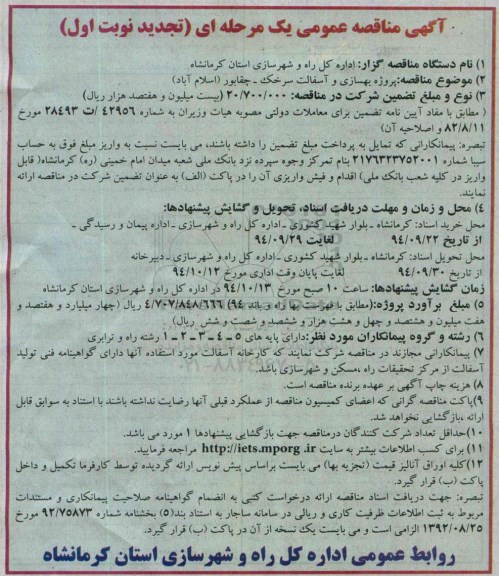 آگهی مناقصه عمومی یک مرحله ای (تجدید نوبت اول)
۱) نام دستگاه مناقصه گزار: اداره کل راه و شهرسازی استان کرمانشاه
۲) موضوع مناقصه: پروژه بهسازی و آسفالت سرخک ـ چقابور (اسلام آباد)
۳) نوع و مبلغ تضمین شرکت در مناقصه: ۲۰/۷۰۰/۰۰۰ (بیست میلیون و هفتصد هزار ریال)
( مطابق با مفاد آیین نامه تضمین برای معاملات دولتی مصوبه هیات وزیران به شماره ۴۲۹۵۶ /ت ۲۸۴۹۳ مورخ
۸۲/۸/۱۱ و اصلاحیه آن)
تبصره: پیمانکارانی که تمایل به پرداخت مبلغ تضمین را داشته باشند، می بایست نسبت به واریز مبلغ فوق به حساب
سیبا شماره ۲۱۷۶۲۳۷۵۲۰۰۱ بنام تمرکز وجوه سپرده نزد بانک ملی شعبه میدان امام خمینی (ره) کرمانشاه( قابل
واریز در کلیه شعب بانک ملی) اقدام و فیش واریزی آن را در پاکت (الف) به عنوان تضمین شرکت در مناقصه ارائه
نمایند.
۴) محل و زمان و مهلت دریافت اسناد، تحویل و گشایش پیشنهادها:
محل خرید اسناد: کرمانشاه ـ بلوار شهید کشوری ـ اداره کل راه و شهرسازی ـ اداره پیمان و رسیدگی ـ
از تاریخ ۹۴/۰۹/۲۲ لغایت ۹۴/۰۹/۲۹
محل تحویل اسناد: کرمانشاه ـ بلوار شهید کشوری ـ اداره کل راه و شهرسازی ـ دبیرخانه
از تاریخ ۹۴/۰۹/۳۰ لغایت پایان وقت اداری مورخ ۹۴/۱۰/۱۲
زمان گشایش پیشنهادها: ساعت ۱۰ صبح مورخ ۹۴/۱۰/۱۳ در اداره کل راه و شهرسازی استان کرمانشاه
۵) مبلغ برآورد پروژه:(مطابق با فهرست بها راه و باند ۹۴) ۴/۷۰۷/۸۴۸/۶۶۶ ریال (چهار میلیارد و هفتصد و
هفت میلیون و هشتصد و چهل و هشت هزار و ششصد و شصت و شش ریال)
۶) رشته و گروه پیمانکاران مورد نظر: دارای پایه های ۵ ـ ۴ ـ ۳ ـ ۲ ـ ۱ رشته راه و ترابری
۷) پیمانکارانی مجازند در مناقصه شرکت نمایند که کارخانه آسفالت مورد استفاده آنها دارای گواهینامه فنی تولید
آسفالت از مرکز تحقیقات راه ،مسکن و شهرسازی باشد.
۸) هزینه چاپ آگهی بر عهده برنده مناقصه است.
۹)پاکت مناقصه گرانی که اعضای کمیسیون مناقصه از عملکرد قبلی آنها رضایت نداشته باشند با استناد به سوابق قابل
ارائه ،بازگشایی نخواهد شد.
۱۰)حداقل تعداد شرکت کنندگان درمناقصه جهت بازگشایی پیشنهادها ۱ مورد می باشد.
۱۱) برای کسب اطلاعات بیشتر به سایت http://iets.mporg.ir مراجعه فرمایید.
۱۲)کلیه اوراق آنالیز قیمت (تجزیه بها) می بایست براساس پیش نویس ارائه گردیده توسط کارفرما تکمیل و داخل
پاکت (ب) قرار گیرد.
تبصره: جهت دریافت اسناد مناقصه ارائه درخواست کتبی به انضمام گواهینامه صلاحیت پیمانکاری و مستندات
مربوط به ثبت اطلاعات ظرفیت کاری و ریالی در سامانه ساجار به استناد بند(۵) بخشنامه شماره ۹۲/۷۵۸۷۳ مورخ
۱۳۹۲/۰۸/۲۵ الزامی است و می بایست یک نسخه از آن در پاکت (ب) قرار گیرد.
روابط عمومی اداره کل راه و شهرسازی استان کرمانشاه